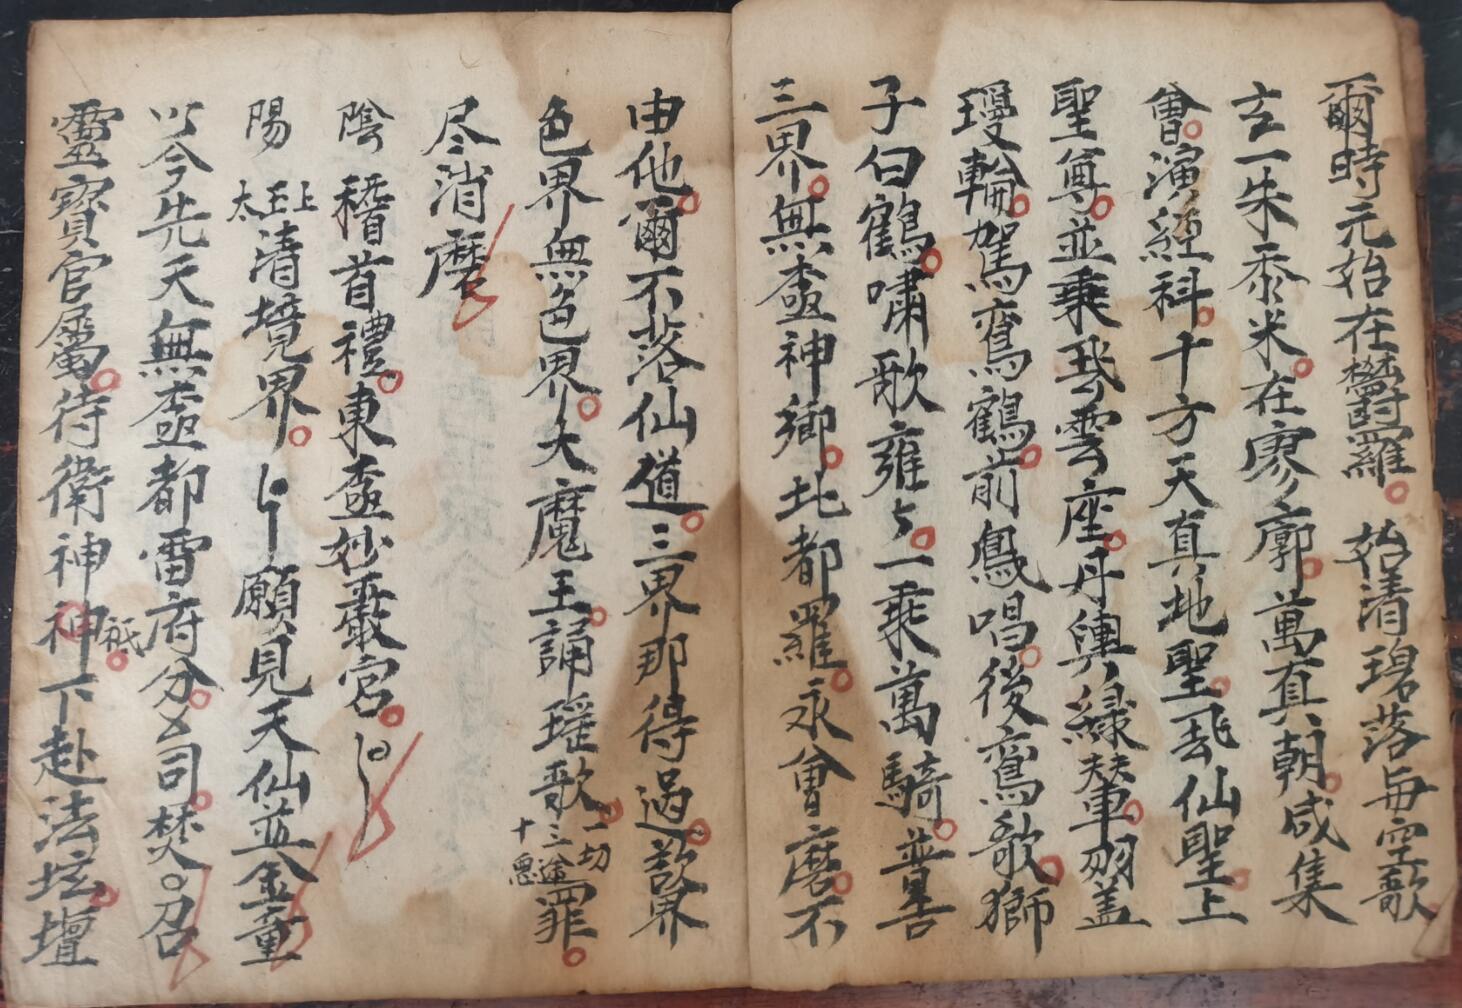 爾時元始在欝羅始清碧落每空歌
玄一朱黍米在寥廓萬真朝咸集
會演經科十方天真地聖飛仙聖上
聖尊並乘飛雲座丹輿綠輦羽盖
瓊輪駕鸞鶴前鳳唱後鸞歌獅
子白鶴嘯歌雍々一乘萬騎普告
三界無壺神鄉北都羅永會磨不
由他爾不落仙道三界那得過欲界
色界無色界大魔王誦瑤歌一切三途十惡罪
尽消磨
陰稽首禮東壺妙嚴宮
陽上玉太清境界願見天仙並金童
以今先天無壺都雷府分司焚召
靈寳官屬待衛神神祇下赴法坛壇